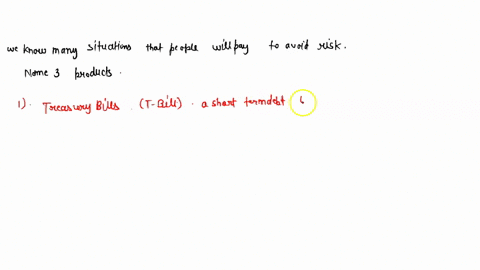 we know many situations that people will pay to avoid risk.
Name 3 products.
1). Treasury Bills (T-Bill). a short term debt